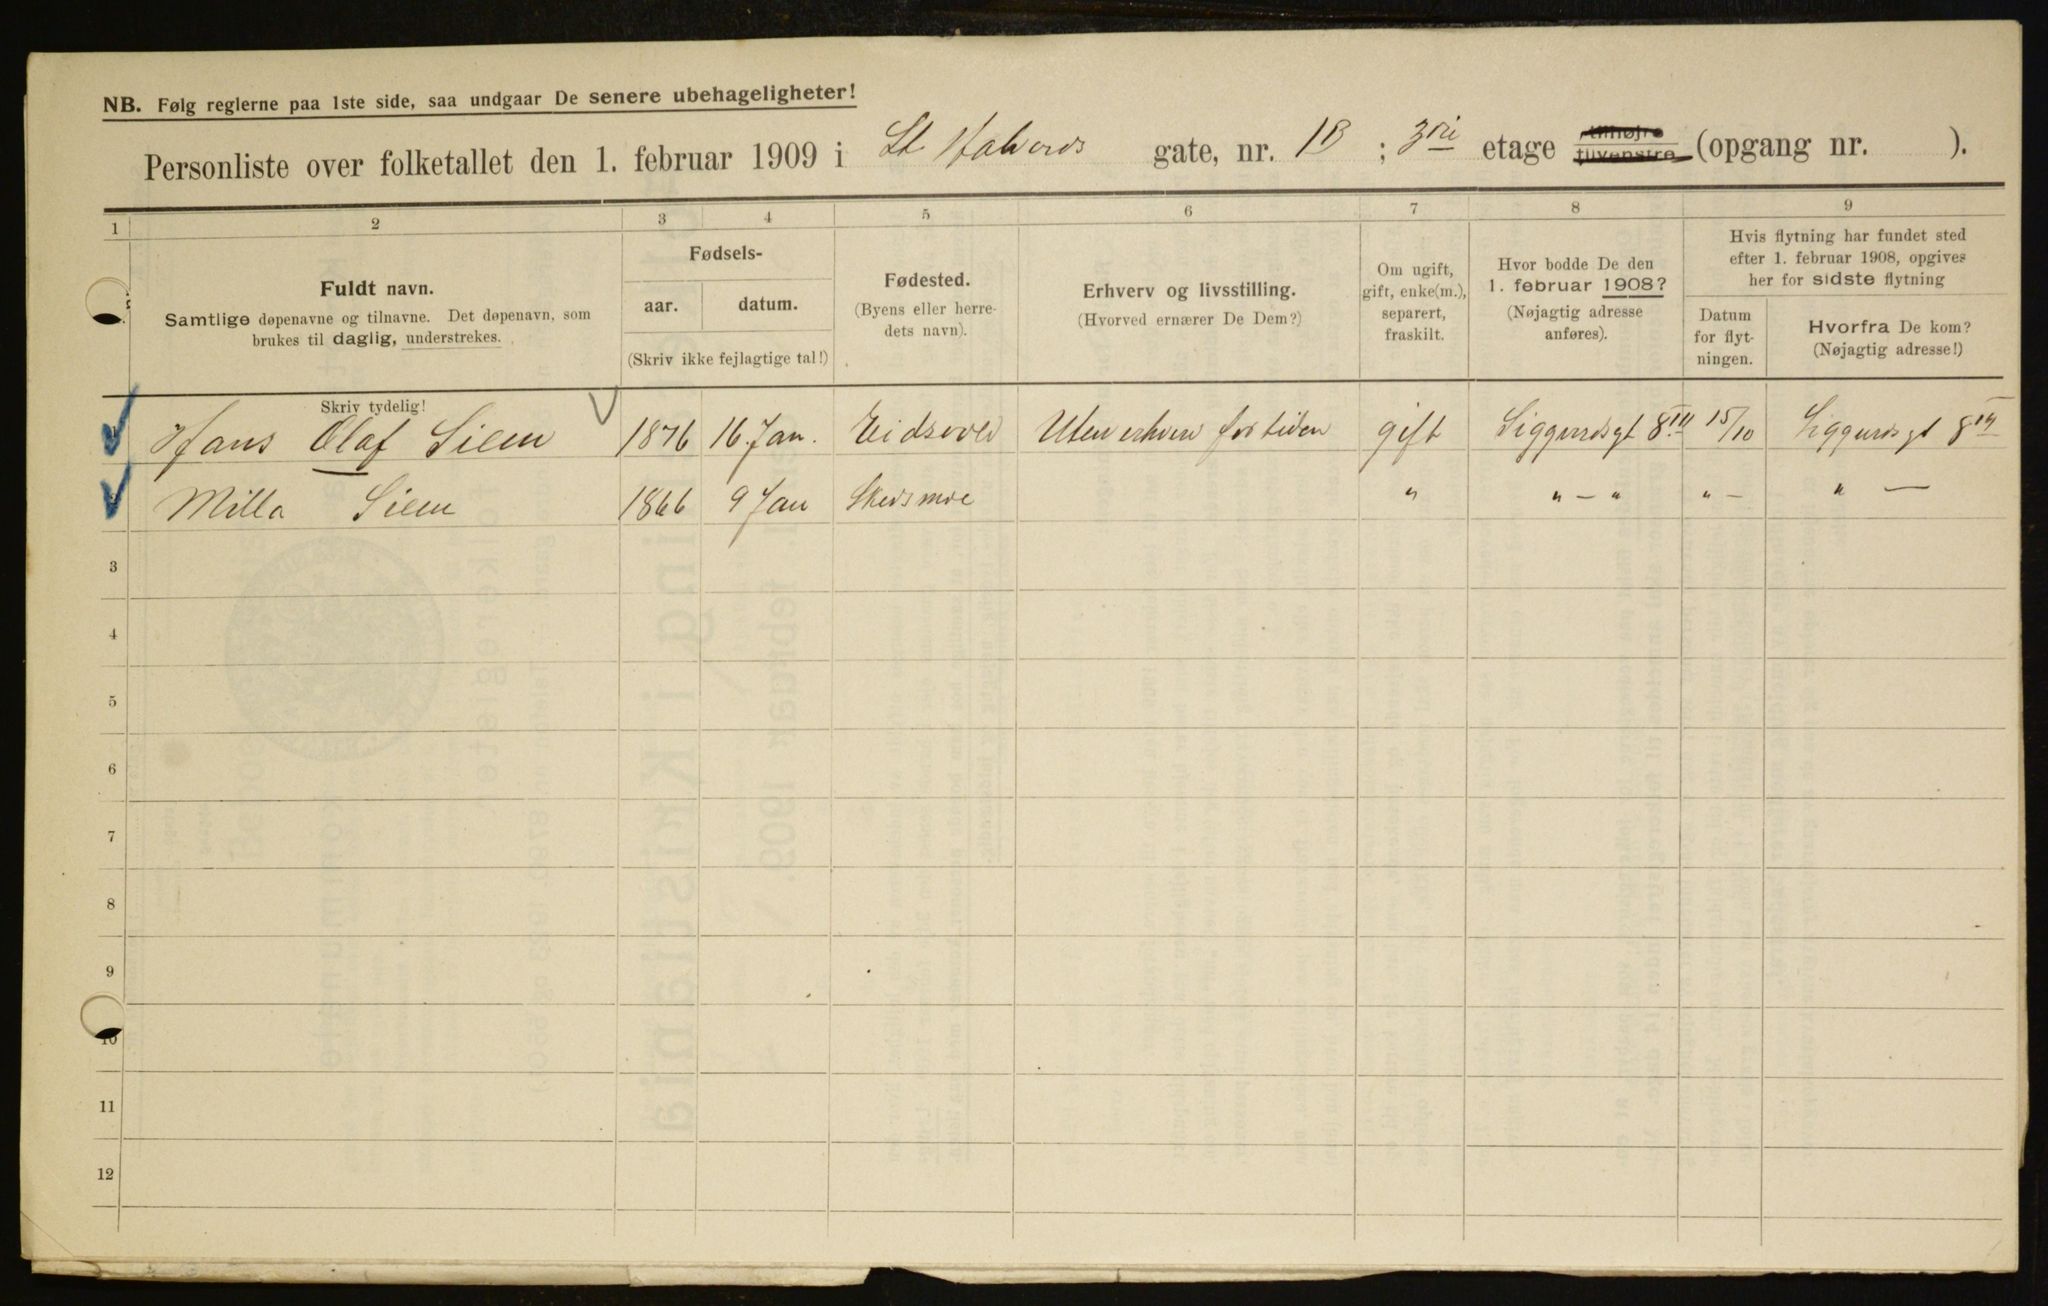 NB. Følg reglerne paa 1ste side, saa undgaar De senere ubehageligheter!
Personliste over folketallet den 1. februar 1909 i St Halvords gate, nr. 1B ; 3die etage tilhøjre tilvenstre (opgang nr. ).
1 2 3 4 5 6 7 8 9
Fuldt navn.
Samtlige døpenavne og tilnavne. Det døpenavn, som
brukes til daglig, understrekes.
Fødsels-
aar. datum.
(Skriv ikke fejlagtige tal!)
Fødested.
(Byens eller herre-
dets navn).
Erhverv og livsstilling.
(Hvorved ernærer De Dem?)
Om ugift,
gift, enke(m.),
separert,
fraskilt.
Hvor bodde De den
1. februar 1908?
(Nøjagtig adresse
anføres).
Hvis flytning har fundet sted
efter 1. februar 1908, opgives
her for sidste flytning
Datum
for flyt-
ningen.
Hvorfra De kom?
(Nøjagtig adresse!)
Skriv tydelig!
Hans Olaf Siem 1876 16. Jan. Eidsvold Uten erhverv for tiden gift Siggurdsgt 8 IV 15/10 Siggurdsgt 8 IV
Milla Siem 1866 9 Jan Skedsmoe " " — " " — " —
3
4
5
6
7
8
9
10
11
12